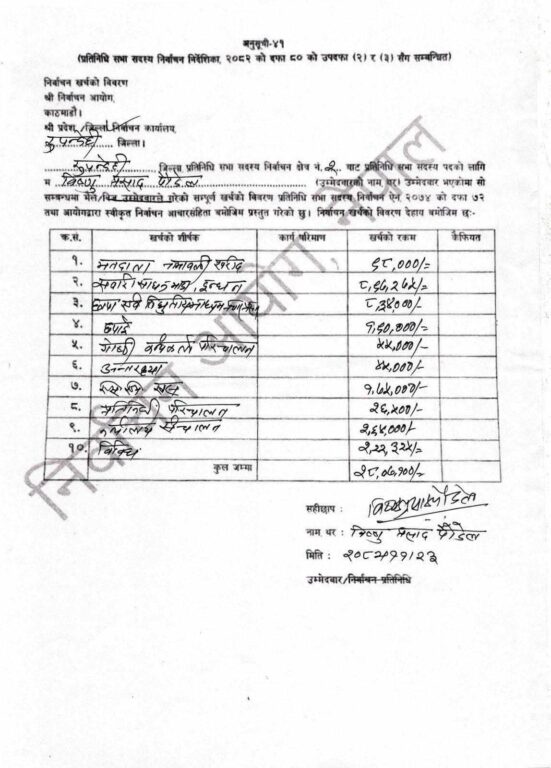 अनुसूची-४१
(प्रतिनिधि सभा सदस्य निर्वाचन निर्देशिका, २०८२ को दफा ८० को उपदफा (२) र (३) सँग सम्बन्धित)
निर्वाचन खर्चको विवरण
श्री निर्वाचन आयोग,
काठमाडौं।
श्री प्रदेश /जिल्ला निर्वाचन कार्यालय,
रुपन्देही जिल्ला।
रुपन्देही जिल्ला प्रतिनिधि सभा सदस्य निर्वाचन क्षेत्र नं. २ बाट प्रतिनिधि सभा सदस्य पदको लागि
म विष्णु प्रसाद पौडेल (उम्मेदवारको नाम थर) उम्मेदवार भएकोमा सो
सम्बन्धमा मैले/निज उम्मेदवारले गरेको सम्पूर्ण खर्चको विवरण प्रतिनिधि सभा सदस्य निर्वाचन ऐन, २०७४ को दफा ७२
तथा आयोगद्वारा स्वीकृत निर्वाचन आचारसंहिता बमोजिम प्रस्तुत गरेको छु। निर्वाचन खर्चको विवरण देहाय बमोजिम छः-
क्र.सं. खर्चको शीर्षक कार्य परिमाण खर्चको रकम कैफियत
१. मतदाता नामावली खरीद ६८,०००/=
२. सवारी साधन भाडा, इन्धन
३. ८,३४,०००/-
४. छपाई १,६०,०००/-
५. गोष्ठी परिचालन ४४,०००/-
६. अन्तरक्रिया ४४,०००/-
७. १,७४,०००/-
८. प्रतिनिधी परिचालन २६,४००/-
९. कार्यालय संचालन २,६४,०००/-
१०. विविध २,२२,३२४/-
कुल जम्मा
सहीछाप :
नाम थर : विष्णु प्रसाद पौडेल
मिति : २०८२।११।२३
उम्मेदवार/निर्वाचन प्रतिनिधि
निर्वाचन आयोग, नेपाल